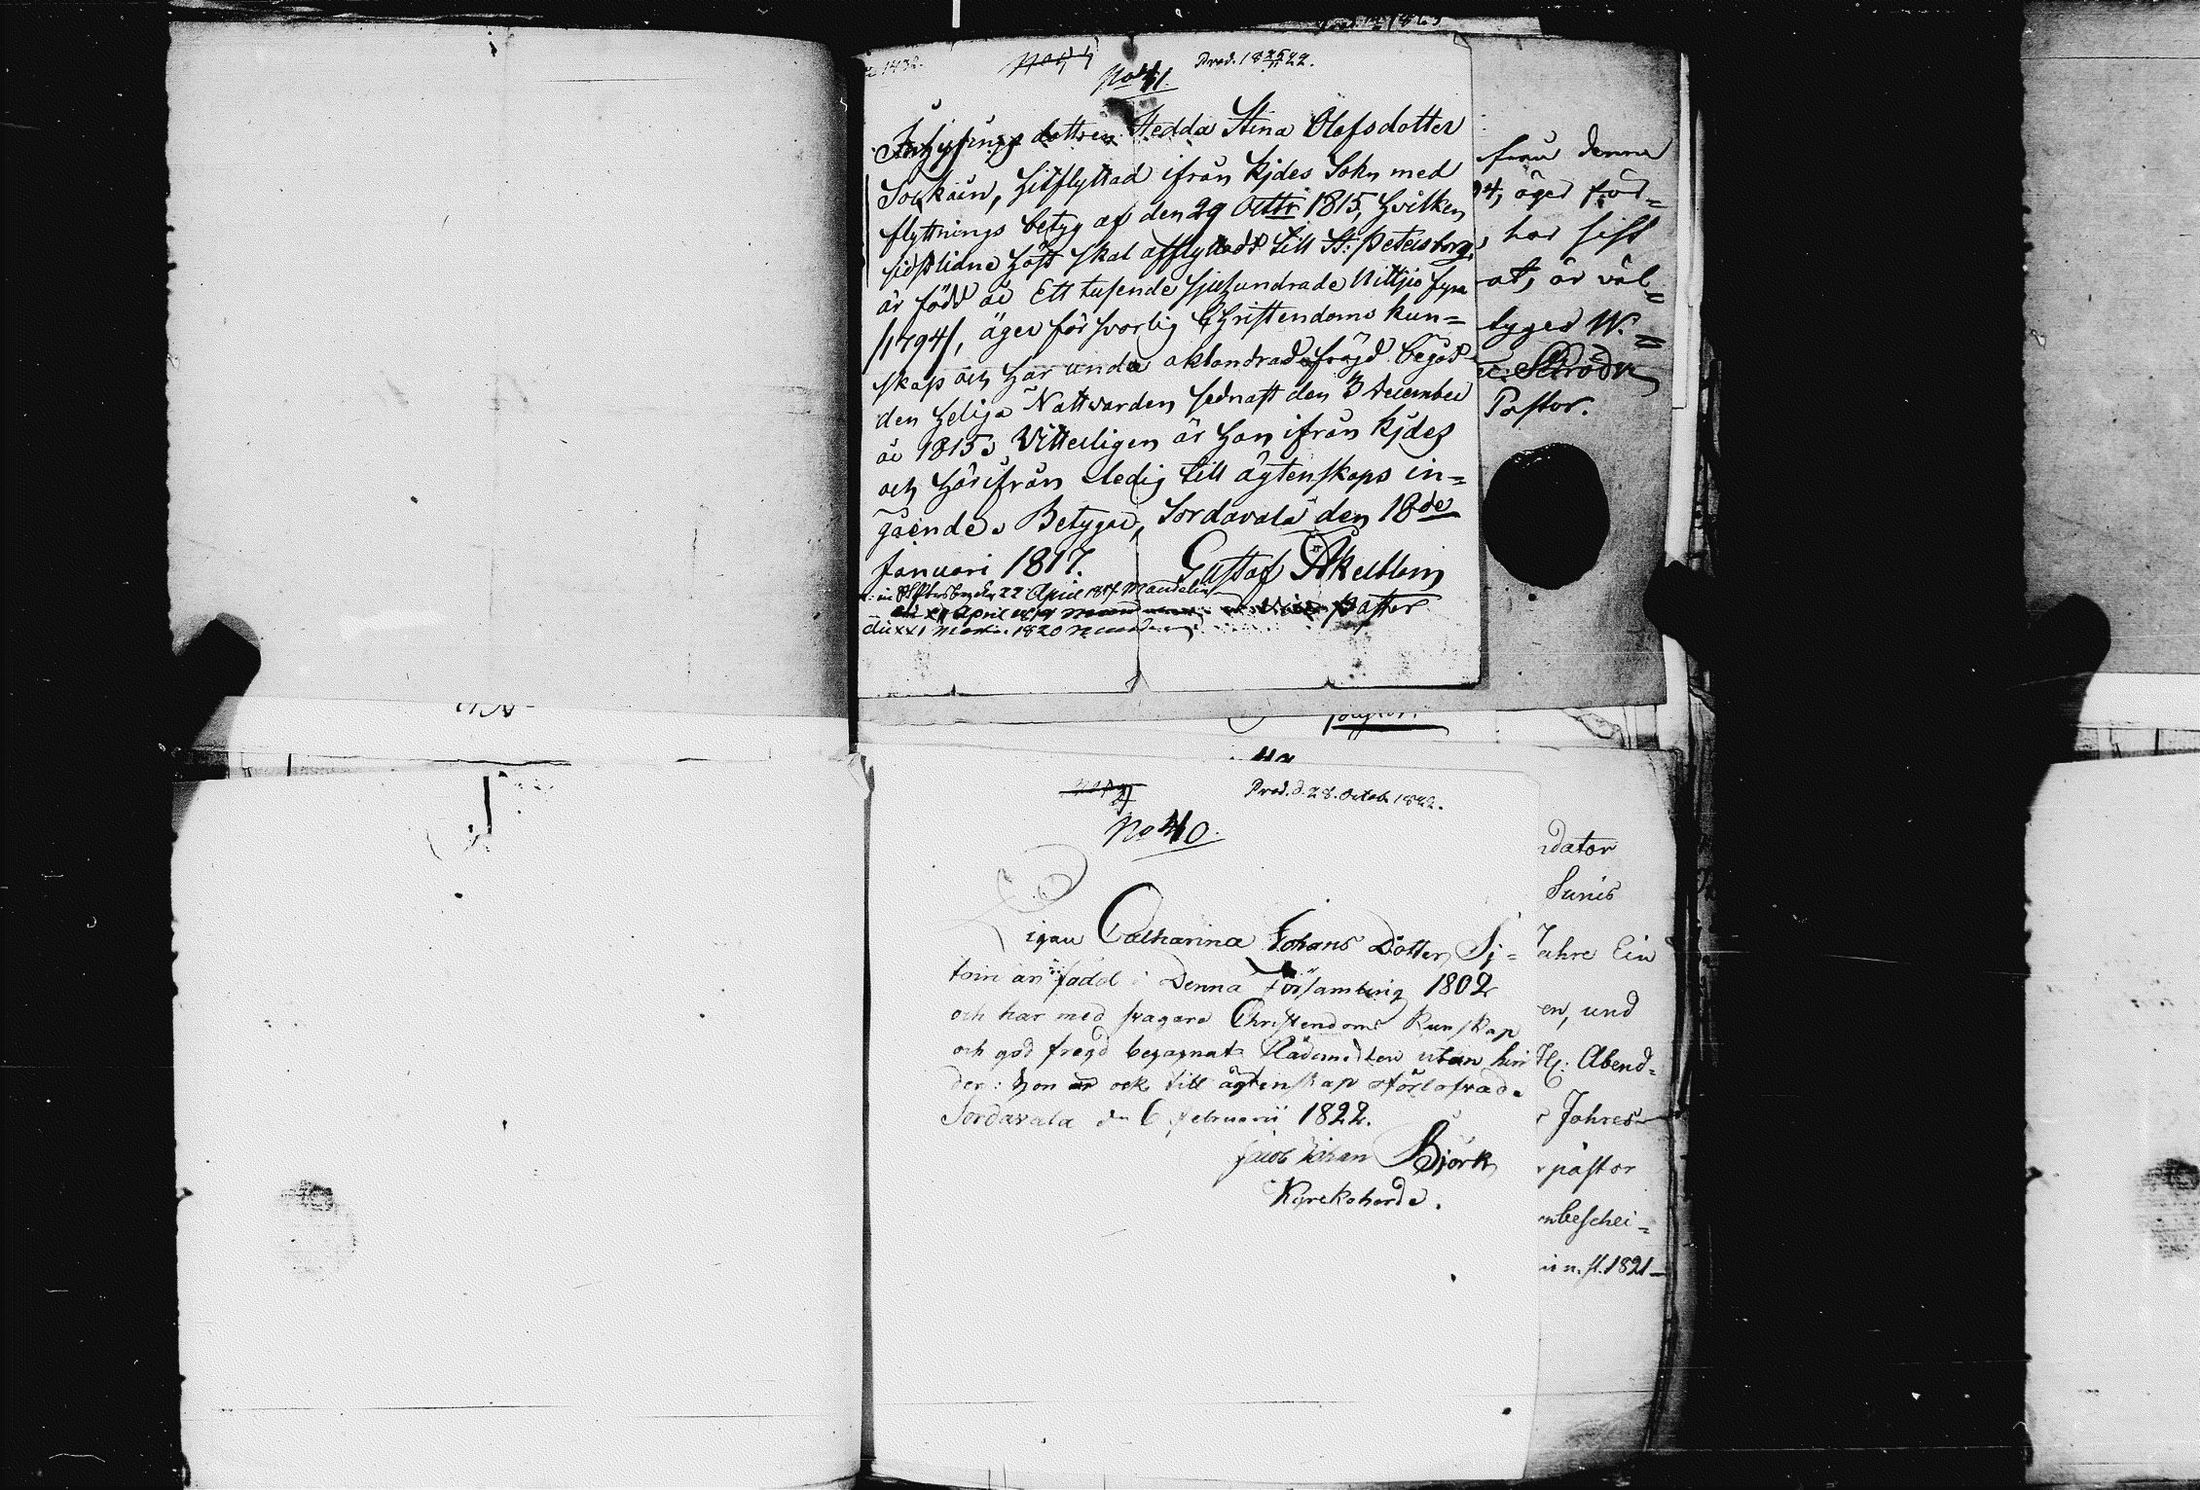 No 41.
Prod. 18 25/11 22.
Inhysings dottren Hedda Stina Olofsdotter
Sockain, hitflyttad ifrån Kides Sokn med
flyttnings betyg af den 29 Octbr 1815, hvilken
sidstlidne höst skal afflyttadt till St: Petersborg,
är född år Ett tusende sjuhundrade Nittjio fyra
/1794/, äger försvarlig Christendoms kun=
skap och har under oklandrad frägd begådt
den heliga Nattvarden sednast den 3 December
år 1815. Vitterligen är hon ifrån Kides
och härifrån ledig till ägtenskaps in=
gående. Betygar, Sordavala den 18de
Januari 1817.
Gustaf Akelblom
Pastor
in St Petersburg den 22 April 1817 Mandelin
1820
från denna
94, äger för=
har sist
at, är väl=
tyger W.=
Pastor.
No 40.
Prod. d. 28. Octob. 1822.
Pigan Catharina Johans Dotter Si=
toin är född i Denna Församling 1802
och har med svagare Christendoms Kunskap
och god fregd begagnat Nådemedlen utan hin
der: hon är ock till ägtenskap oförlofvad.
Sordavala d. 6 Februarii 1822.
Jacob Johan Björk
Kyrkoherde.
dator
Sunis
Jahre Ein
en, und
Hl: Abend=
Jahres
pastor
nbeschei=
n. st. 1821